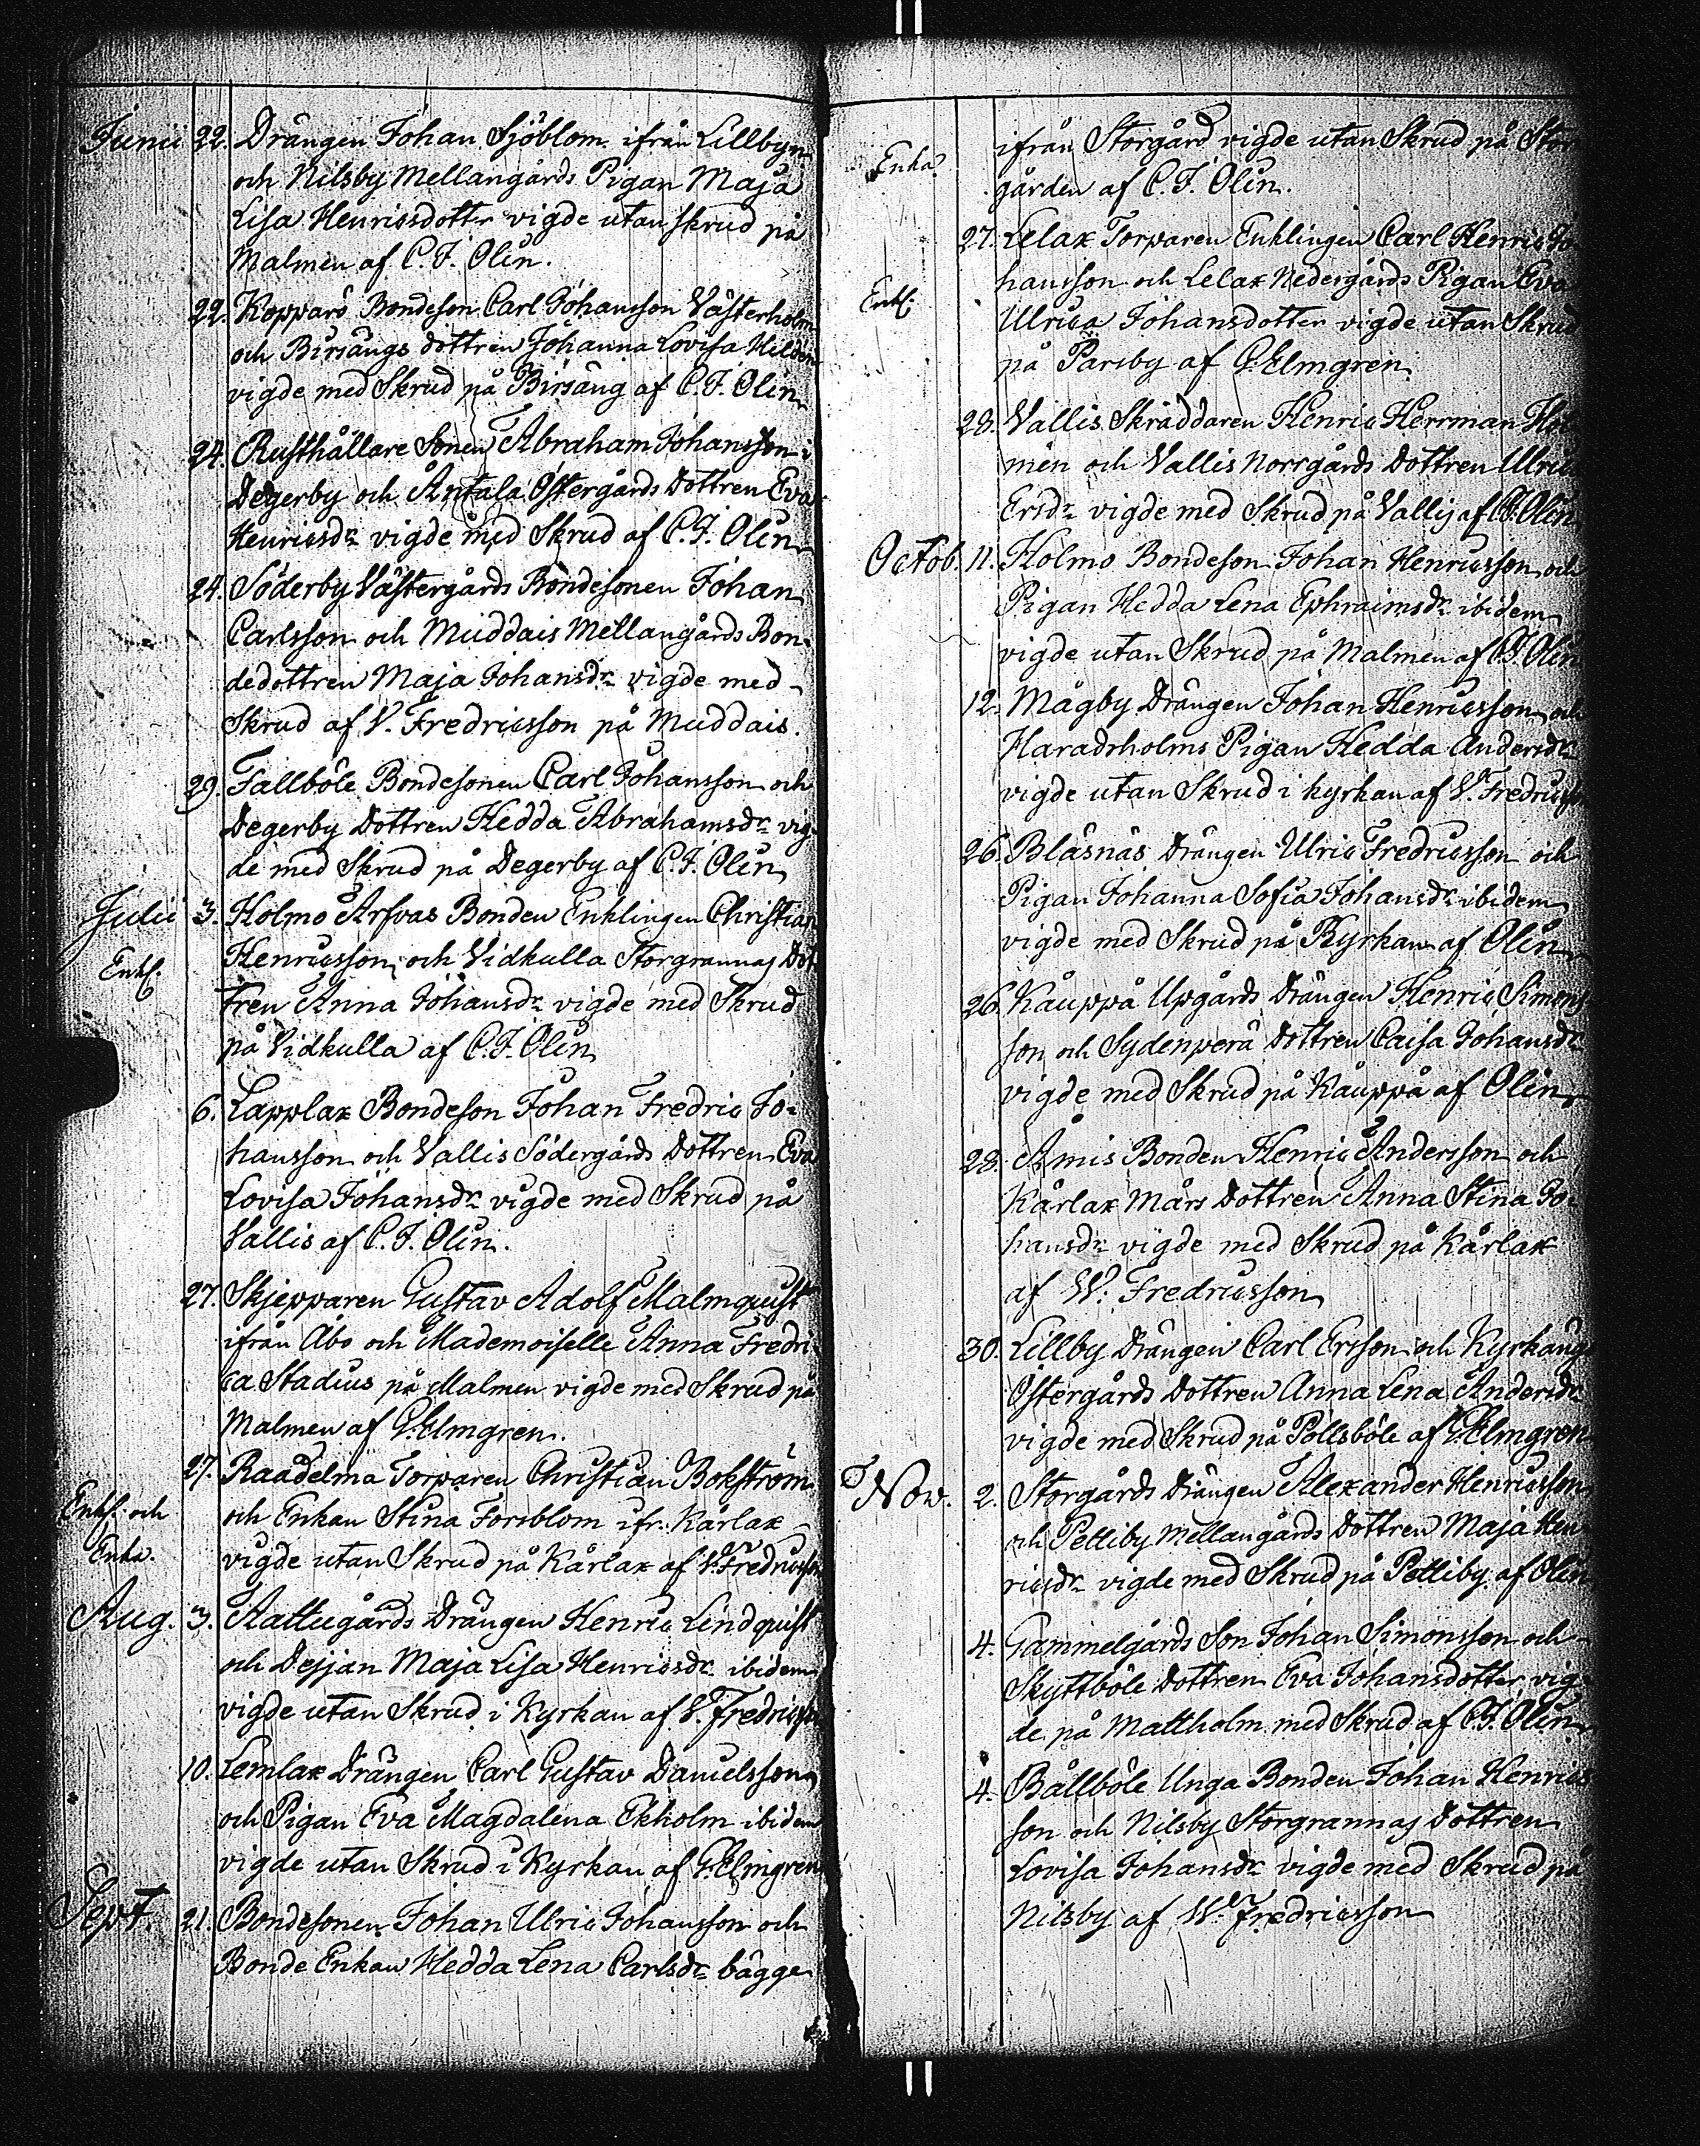 Junii 22. Drängen Johan Sjöblom ifrån Lillbyn
och Nilsby Mellangårds Pigan Maja
Lisa Henricsdotter vigde utan skrud på
Malmen af C. F. Olin.
22. Kopparö Bondeson Carl Johansson Västerholm
och Birsängs dottren Johanna Lovisa Hildén
vigde med Skrud på Birsäng af C. F. Olin
24. Rusthållare Sonen Abraham Johansson i
Degerby och Antala Östergårds Dottren Eva
Henricsdr vigde med Skrud af C. F. Olin
24. Söderby Västergårds Bondesonen Johan
Carlsson och Muddais Mellangårds Bon-
dedottren Maja Johansdr vigde med
Skrud af V. Fredricsson på Muddais.
29. Fallböle Bondesonen Carl Johansson och
Degerby Dottren Hedda Abrahamsdr vig-
de med Skrud på Degerby af C. F. Olin
Julii 3. Holmo Arfvas Bonden Enklingen Christian
Enkl. Henricsson och Vidkulla Storgrannas Dot-
tren Anna Johansdr vigde med Skrud
på Vidkulla af C. F. Olin
6. Lapplax Bondeson Johan Fredric Jo-
hansson och Vallis Södergårds Dottren Eva
Lovisa Johansdr vigde med Skrud på
Vallis af C. F. Olin.
27. Skjepparen Gustav Adolf Malmquist
ifrån Åbo och Mademoiselle Anna Fredri-
ca Stadius på Malmen vigde med Skrud på
Malmen af G. Elmgren.
27. Raadelma Torparen Christian Bokström
Enkl. och och Enkan Stina Forsblom ifr. Kårlax
Enka. vigde utan Skrud på Kårlax af V. Fredricsson
Aug. 3. Aattugårds Drängen Henric Lindquist
och Dejjan Maja Lisa Henricsdr ibidem
vigde utan Skrud i Kyrkan af V. Fredricsson
10. Lemlax Drängen Carl Gustav Danielsson
och Pigan Eva Magdalena Ekholm ibidem
vigde utan Skrud i Kyrkan af G. Elmgren
Sept. 21. Bondesonen Johan Ulric Johansson och
Bonde Enkan Hedda Lena Carlsdr bägge
ifrån Storgård vigde utan Skrud på Stor
Enka. gården af C. F. Olin.
27. Lelax Torparen Enklingen Carl Henric Jo
Enkl. hansson och Lelax Nedergårds Pigan Eva
Ulrica Johansdotter vigde utan Skrud
på Parsby af G. Elmgren.
28. Vallis Skräddaren Henric Herrman Hol
mén och Vallis Norrgårds Dottren Ulrica
Ersdr vigde med Skrud på Vallis af C. F. Olin
Octob. 11. Holmo Bondeson Johan Henricsson och
Pigan Hedda Lena Ephraimsdr ibidem
vigde utan Skrud på Malmen af C. F. Olin
12. Mågby Drängen Johan Henricsson och
Haradsholms Pigan Hedda Andersdr
vigde utan Skrud i kyrkan af V. Fredricsson
26. Bläsnäs Drängen Ulric Fredricsson och
Pigan Johanna Sofia Johansdr ibidem
vigde med Skrud på Kyrkan af Olin
26. Kauppå Upgårds Drängen Henric Simons
son och Sydenperä Dottren Caisa Johansdr
vigde med Skrud på Kauppå af Olin
28. Åmis Bonden Henric Andersson och
Kårlax Mårs Dottren Anna Stina Jo-
hansdr vigde med Skrud på Kårlax
af W. Fredricsson
30. Lillby Drängen Carl Ersson och Kyrkäng
Östergårds Dottren Anna Lena Andersdr
vigde med Skrud på Pollsböle af G. Elmgren
Nov. 2. Storgårds Drängen Alexander Henricsson
och Pettiby Mellangårds Dottren Maja Hen-
ricsdr vigde med Skrud på Pettiby af Olin
4. Gammelgårds Son Johan Simonsson och
Skyttböle Dottren Eva Johansdotter vig-
de på Mattholm med Skrud af C. F. Olin
4. Bällböle Unga Bonden Johan Henrics
son och Nilsby Storgrannas Dottren
Lovisa Johansdr vigde med Skrud på
Nilsby af W. Fredricsson